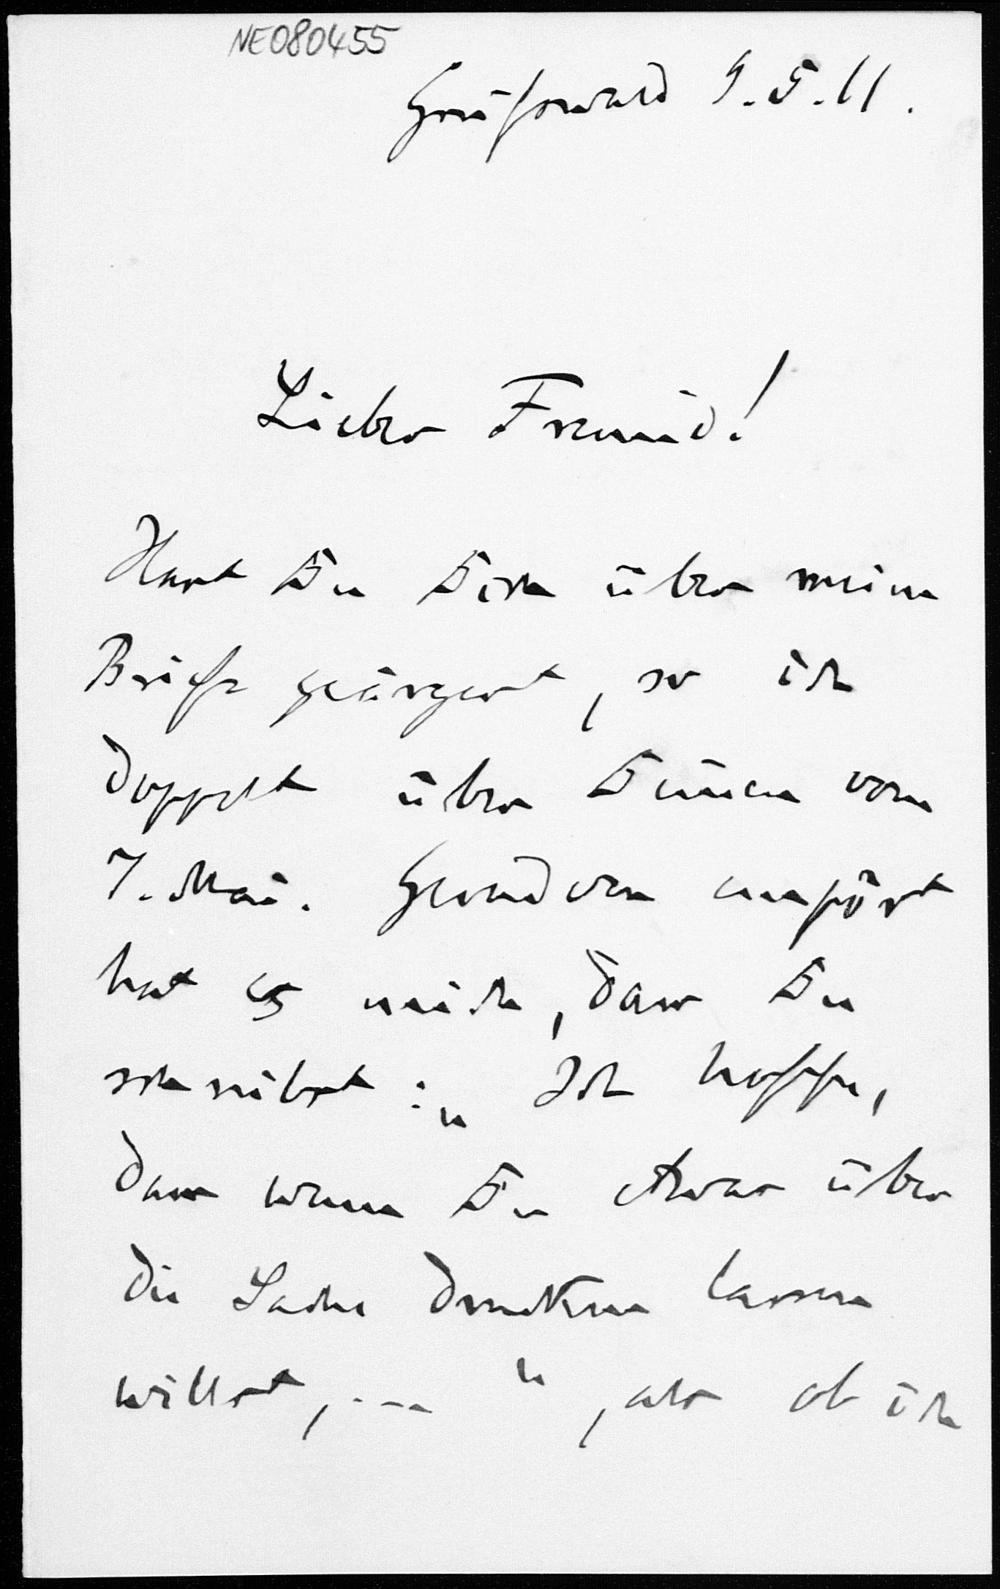 NE080455
Greifswald 9.5.11.
Lieber Freund!
Hast Du Dich über meine
Briefe geärgert, so ich
doppelt über Deinen vom
7. Mai. Geradezu empört
hat es mich, dass Du
schreibst: „Ich hoffe,
dass wenn Du etwas über
die Sache drucken lassen
willst, ...“, als ob ich